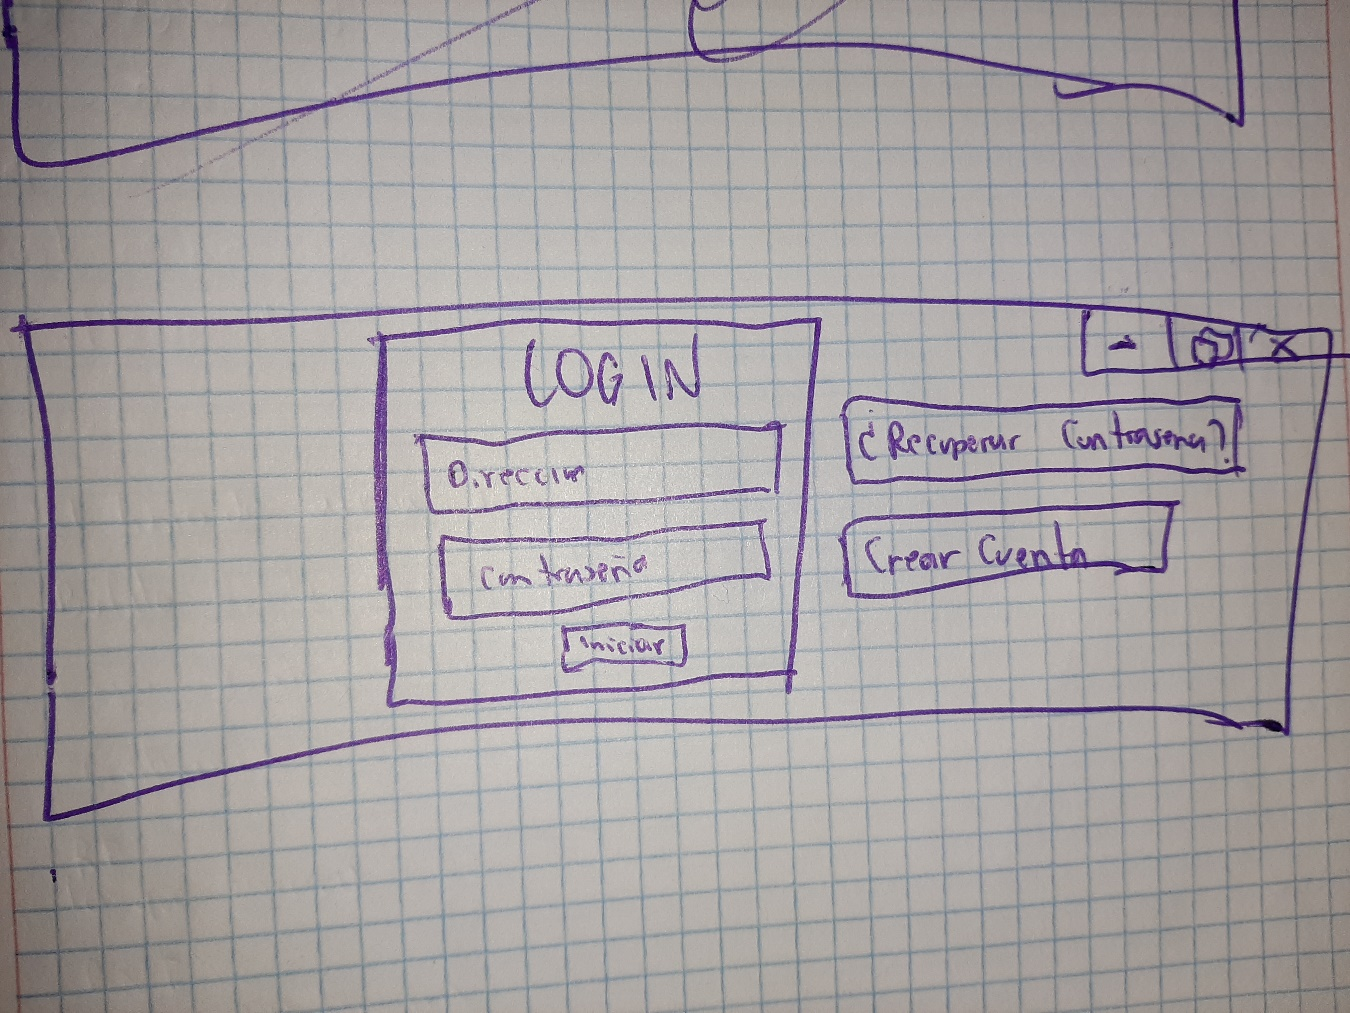 LOGIN
Dirección
Contraseña
Iniciar
¿Recuperar Contraseña?
Crear Cuenta